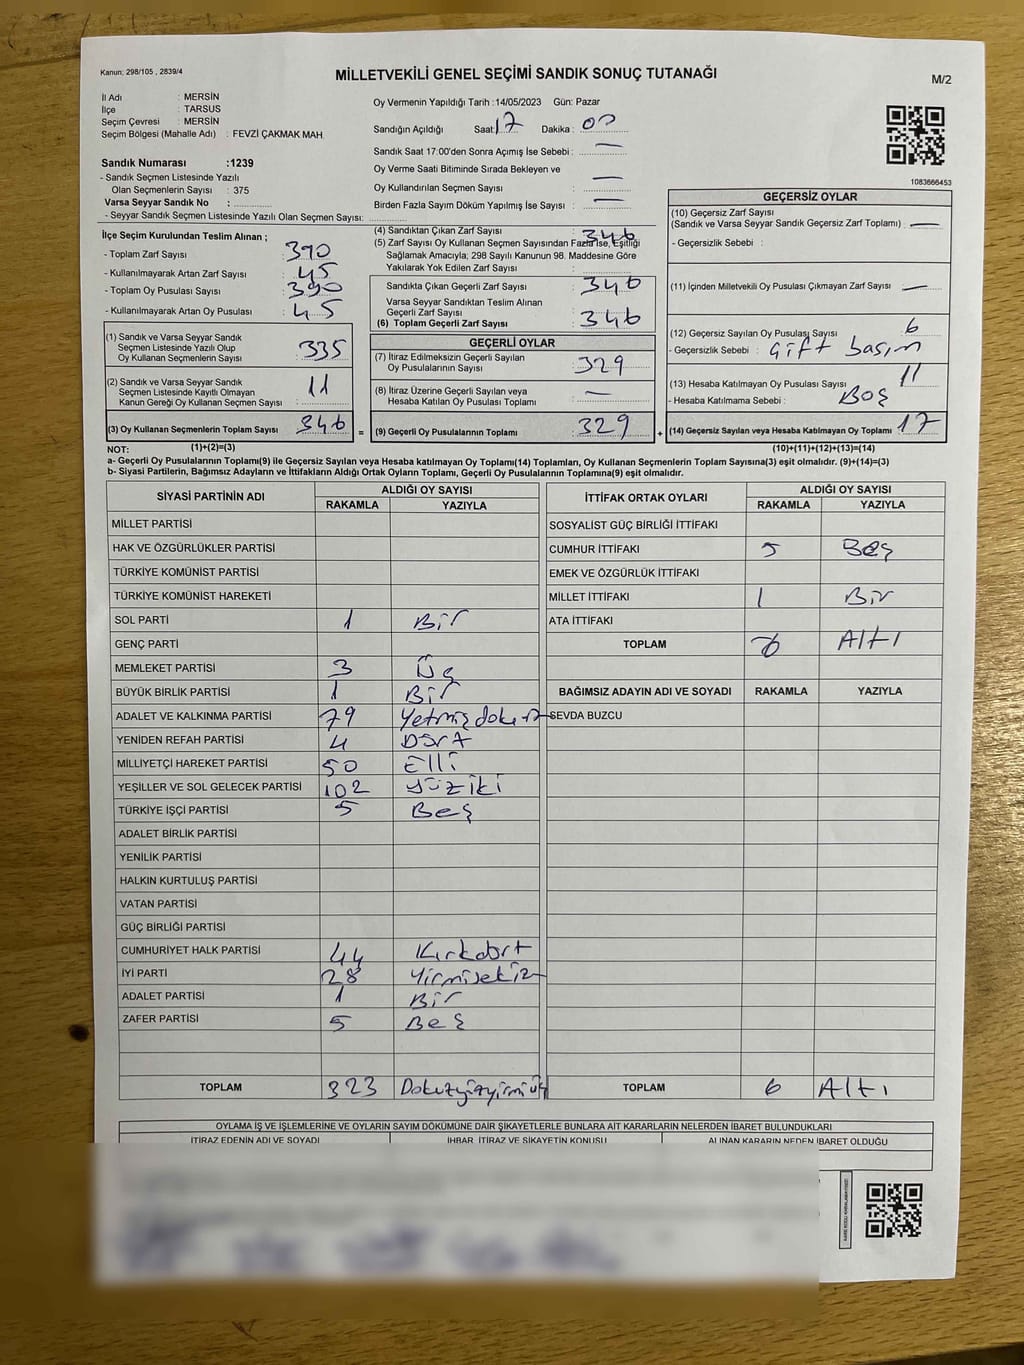 Kanun; 298/105 , 2839/4
MİLLETVEKİLİ GENEL SEÇİMİ SANDIK SONUÇ TUTANAĞI
M/2
İl Adı : MERSİN
İlçe : TARSUS
Seçim Çevresi : MERSİN
Seçim Bölgesi (Mahalle Adı) : FEVZİ ÇAKMAK MAH.
Oy Vermenin Yapıldığı Tarih :14/05/2023 Gün: Pazar
Sandığın Açıldığı Saat: 17 Dakika : 00
Sandık Saat 17:00'den Sonra Açımış İse Sebebi : —
Oy Verme Saati Bitiminde Sırada Bekleyen ve
Oy Kullandırılan Seçmen Sayısı : —
Birden Fazla Sayım Döküm Yapılmış İse Sayısı : —
1083666453
Sandık Numarası :1239
- Sandık Seçmen Listesinde Yazılı
Olan Seçmenlerin Sayısı : 375
Varsa Seyyar Sandık No :
- Seyyar Sandık Seçmen Listesinde Yazılı Olan Seçmen Sayısı:
İlçe Seçim Kurulundan Teslim Alınan ;
- Toplam Zarf Sayısı : 390
- Kullanılmayarak Artan Zarf Sayısı : 45
- Toplam Oy Pusulası Sayısı : 390
- Kullanılmayarak Artan Oy Pusulası : 45
(1) Sandık ve Varsa Seyyar Sandık
Seçmen Listesinde Yazılı Olup
Oy Kullanan Seçmenlerin Sayısı : 335
(2) Sandık ve Varsa Seyyar Sandık
Seçmen Listesinde Kayıtlı Olmayan
Kanun Gereği Oy Kullanan Seçmen Sayısı : 11
(3) Oy Kullanan Seçmenlerin Toplam Sayısı : 346 =
(4) Sandıktan Çıkan Zarf Sayısı : 346
(5) Zarf Sayısı Oy Kullanan Seçmen Sayısından Fazla İse, Eşitliği
Sağlamak Amacıyla; 298 Sayılı Kanunun 98. Maddesine Göre
Yakılarak Yok Edilen Zarf Sayısı :
Sandıkta Çıkan Geçerli Zarf Sayısı : 346
Varsa Seyyar Sandıktan Teslim Alınan
Geçerli Zarf Sayısı :
(6) Toplam Geçerli Zarf Sayısı : 346
GEÇERLİ OYLAR
(7) İtiraz Edilmeksizin Geçerli Sayılan
Oy Pusulalarının Sayısı : 329
(8) İtiraz Üzerine Geçerli Sayılan veya
Hesaba Katılan Oy Pusulası Toplamı : —
(9) Geçerli Oy Pusulalarının Toplamı : 329 +
GEÇERSİZ OYLAR
(10) Geçersiz Zarf Sayısı
(Sandık ve Varsa Seyyar Sandık Geçersiz Zarf Toplamı) : —
- Geçersizlik Sebebi :
(11) İçinden Milletvekili Oy Pusulası Çıkmayan Zarf Sayısı : —
(12) Geçersiz Sayılan Oy Pusulası Sayısı : 6
- Geçersizlik Sebebi : Çift basım
(13) Hesaba Katılmayan Oy Pusulası Sayısı : 11
- Hesaba Katılmama Sebebi : Boş
(14) Geçersiz Sayılan veya Hesaba Katılmayan Oy Toplamı : 17
NOT: (1)+(2)=(3) (10)+(11)+(12)+(13)=(14)
a- Geçerli Oy Pusulalarının Toplamı(9) ile Geçersiz Sayılan veya Hesaba katılmayan Oy Toplamı(14) Toplamları, Oy Kullanan Seçmenlerin Toplam Sayısına(3) eşit olmalıdır. (9)+(14)=(3)
b- Siyasi Partilerin, Bağımsız Adayların ve İttifakların Aldığı Ortak Oyların Toplamı, Geçerli Oy Pusulalarının Toplamına(9) eşit olmalıdır.
SİYASİ PARTİNİN ADI ALDIĞI OY SAYISI
RAKAMLA YAZIYLA
MİLLET PARTİSİ
HAK VE ÖZGÜRLÜKLER PARTİSİ
TÜRKİYE KOMÜNİST PARTİSİ
TÜRKİYE KOMÜNİST HAREKETİ
SOL PARTİ 1 Bir
GENÇ PARTİ
MEMLEKET PARTİSİ 3 Üç
BÜYÜK BİRLİK PARTİSİ 1 Bir
ADALET VE KALKINMA PARTİSİ 79 Yetmişdokuz
YENİDEN REFAH PARTİSİ 4 Dört
MİLLİYETÇİ HAREKET PARTİSİ 50 Elli
YEŞİLLER VE SOL GELECEK PARTİSİ 102 Yüziki
TÜRKİYE İŞÇİ PARTİSİ 5 Beş
ADALET BİRLİK PARTİSİ
YENİLİK PARTİSİ
HALKIN KURTULUŞ PARTİSİ
VATAN PARTİSİ
GÜÇ BİRLİĞİ PARTİSİ
CUMHURİYET HALK PARTİSİ 44 Kırkdört
İYİ PARTİ 28 Yirmisekiz
ADALET PARTİSİ 1 Bir
ZAFER PARTİSİ 5 Beş
TOPLAM 323
İTTİFAK ORTAK OYLARI ALDIĞI OY SAYISI
RAKAMLA YAZIYLA
SOSYALİST GÜÇ BİRLİĞİ İTTİFAKI
CUMHUR İTTİFAKI 5 Beş
EMEK VE ÖZGÜRLÜK İTTİFAKI
MİLLET İTTİFAKI 1 Bir
ATA İTTİFAKI
TOPLAM 6 Altı
BAĞIMSIZ ADAYIN ADI VE SOYADI RAKAMLA YAZIYLA
SEVDA BUZCU
TOPLAM 6 Altı
OYLAMA İŞ VE İŞLEMLERİNE VE OYLARIN SAYIM DÖKÜMÜNE DAİR ŞİKAYETLERLE BUNLARA AİT KARARLARIN NELERDEN İBARET BULUNDUKLARI
İTİRAZ EDENİN ADI VE SOYADI İHBAR, İTİRAZ VE ŞİKAYETİN KONUSU ALINAN KARARIN NEDEN İBARET OLDUĞU